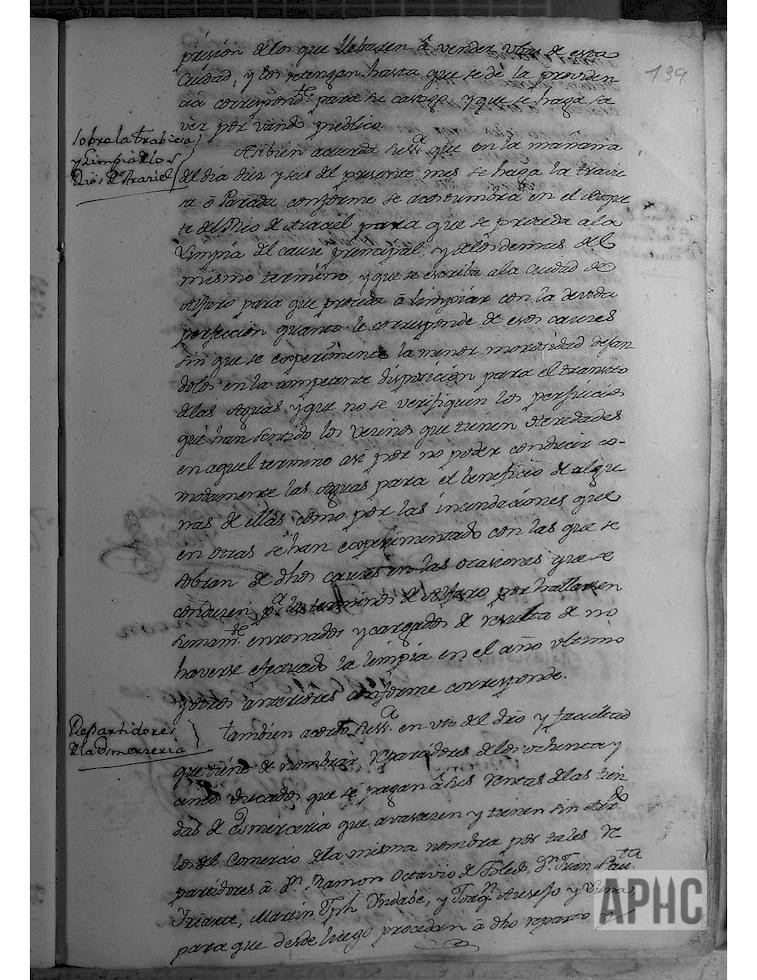 139
prision de los que llebasen â vender Vbas de essa
Ciudad, y los tengan hasta que se dé la providen
cia correspond.te para su castigo y que se haga sa
ver por vando publico.
Sobre la trabiesa
y Limpia de los
Rios de Araciel
Asibien acuerda su SS.a que en la mañana
del dia diez y seis del presente mes se haga la travie
sa ô Parada conforme se acostumbra en el
te del Rio de Araciel para que se proceda a la
Limpia del cauze principal, y delos demas del
mismo termino, y que se escriba ala ciudad de
Alfaro para que proceda â limpiar con la devida
perfeccion quanto le corresponde de esos cauzes
sin que se experimente la menor morosidad dejan
dolos en la competente disposicion para el transito
delas Aguas y que no se verifiquen los perjuicios
que han sentido los vecinos que tienen Heredades
en aquel termino asi por no poder conducir co-
modamente las Aguas para el beneficio de algu
nas de ellas como por las inundaciones que
en otras se han experimentado con las que se
sobran de dhos cauzes en las ocasiones que se
conducen p.a los terminos de Alfaro por hallarsen
sumam.te enronados y cargados de resulta de no
haverse efectuado la limpia en el año ultimo
y otros anteriores conforme corresponde.
Repartidores
de la Merceria
tambien acordó su SS.a en uso del dro y facultad
que tiene de nombrar repartidores delos ochenta y
cinco ducados que se pagan â sus rentas delas tien
das de Merceria que avastecen y tienen sin
los del Comercio dela misma nombra por tales re
partidores â D.n Ramon Octavio de Toledo, D.n Juan Bau.ta
Iriarte, Martin Jph Undabe, y Joaq.n
para que desde luego procedan â dho reparto y
APHC